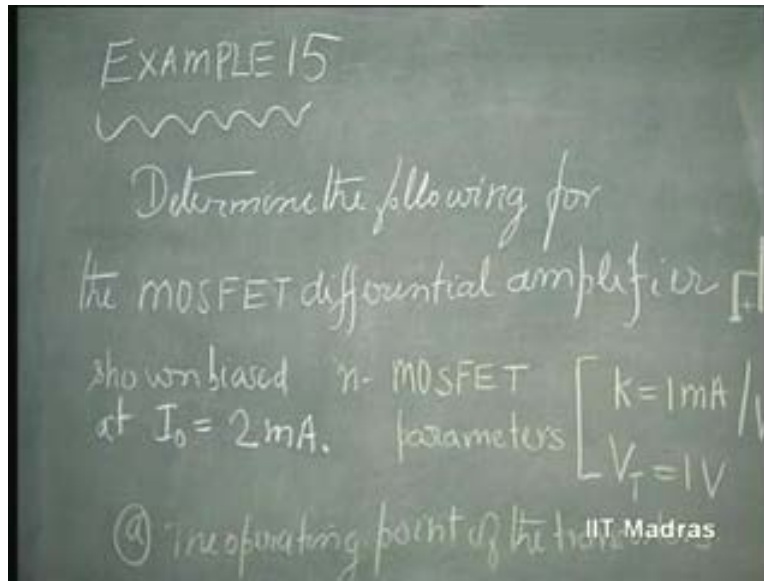 EXAMPLE 15
Determine the following for
the MOSFET differential amplifier
shown biased n- MOSFET K=1mA/V
at I₀ = 2mA. parameters V_T = 1V
(a) The operating point of the
IIT Madras